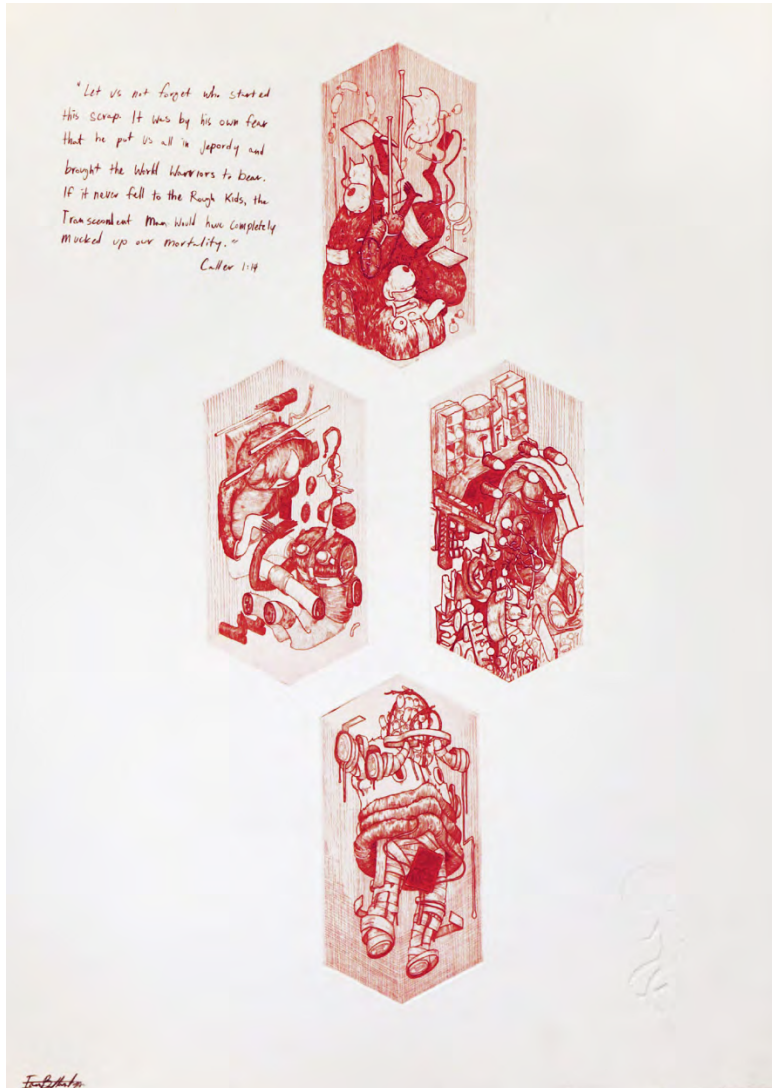 "Let us not forget who started
this scrap. It was by his own fear
that he put us all in jepordy and
brought the World Warriors to bear.
If it never fell to the Rough Kids, the
Transcendent Man would have completely
mucked up our mortality."
Caller 1:14